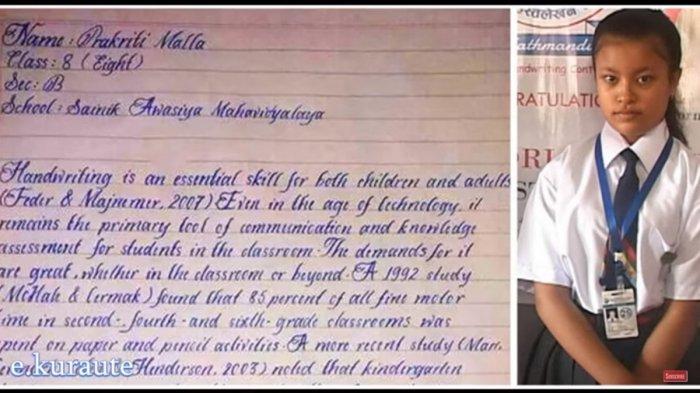 Name : Prakriti Malla
Class : 8 (Eight)
Sec : B
School : Sainik Awasiya Mahavidyalaya
Handwriting is an essential skill for both children and adults
(Feder & Majnemer, 2007) Even in the age of technology, it
remains the primary tool of communication and knowledge
assessment for students in the classroom. The demands for it
are great, whether in the classroom or beyond. A 1992 study
(McHale & Cermak) found that 85 percent of all fine motor
time in second-, fourth- and sixth-grade classrooms was
spent on paper and pencil activities. A more recent study (Marr,
Henderson, 2003) noted that kindergarten
e.kuraute
athmandu
ndwriting Cont
RATULATIO
Subscribe